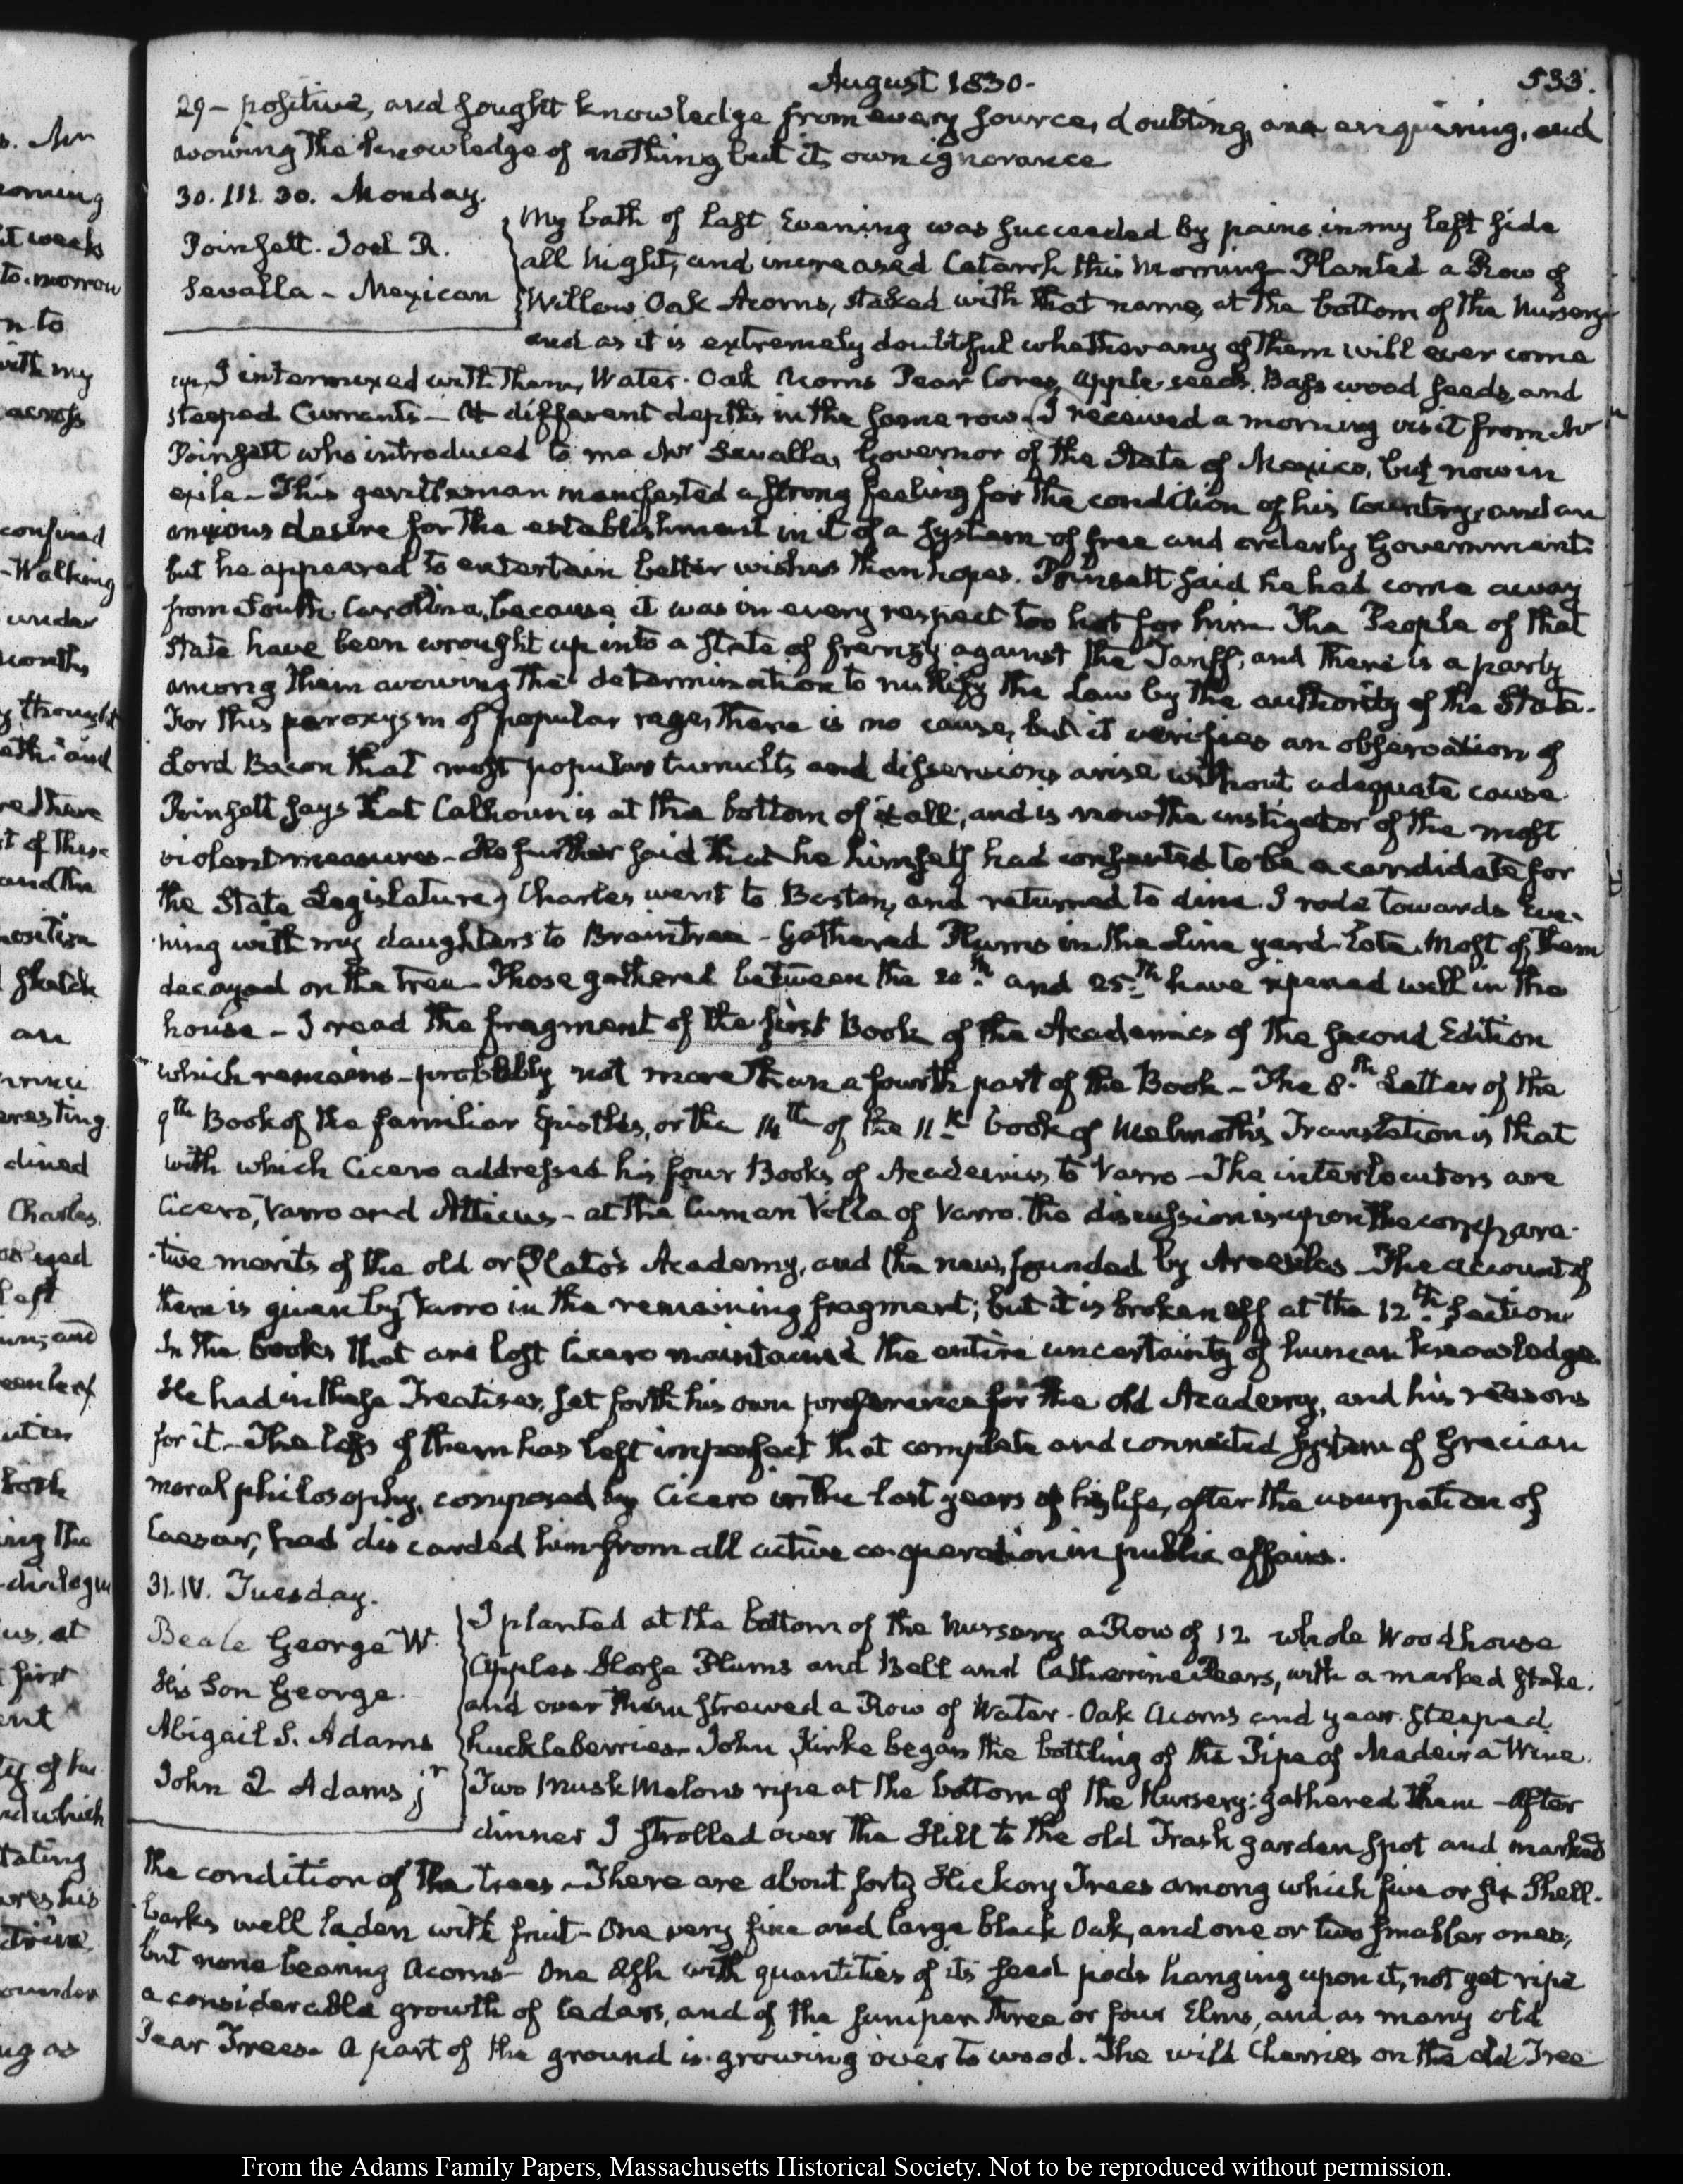 August 1830.
533.
29 - positive, and sought knowledge from every source, doubting, and enquiring, and
avowing the knowledge of nothing but its own ignorance
30. III. 30. Monday.
Poinsett. Joel R.
Sevalla - Mexican
My bath of last Evening was succeeded by pains in my left side
all Night, and increased Catarrh this Morning - Planted a Row of
Willow Oak Acorns, staked with that name, at the bottom of the Nursery -
and as it is extremely doubtful whether any of them will ever come
up, I intermixed with them, Water-Oak Acorns Pear Cores, apple-seeds, Bass wood seeds, and
steeped Currants - At different depths in the same row. I received a morning visit from Mr
Poinsett who introduced to me Mr Sevalla, Governor of the State of Mexico, but now in
exile - This gentleman manifested a strong feeling for the condition of his Country, and an
anxious desire for the establishment in it of a system of free and orderly Government:
but he appeared to entertain better wishes than hopes. Poinsett said he had come away
from South-Carolina, because it was in every respect too hot for him. The People of that
State have been wrought up into a state of frenzy against the Tariff, and there is a party
among them avowing the determination to nullify the Law by the authority of the State.
For this paroxysm of popular rage, there is no cause, but it verifies an observation of
Lord Bacon that most popular tumults and dissensions arise without adequate cause.
Poinsett says that Calhoun is at the bottom of it all; and is now the instigator of the most
violent measures - He further said that he himself had consented to be a candidate for
the State Legislature) Charles went to Boston, and returned to dine. I rode towards Eve-
ning with my daughters to Braintree - Gathered Plums in the Line yard late. Most of them
decayed on the tree - Those gathered between the 20th and 25th have ripened well in the
house - I read the fragment of the first Book of the Academics of the second Edition
which remains - probably not more than a fourth part of the Book - The 8th Letter of the
9th Book of the familiar Epistles, or the 14th of the 11th book of Melmoth's Translation is that
with which Cicero addressed his four Books of Academics to Varro - The interlocutors are
Cicero, Varro and Atticus - at the Cuman Villa of Varro. The discussion is upon the compara-
tive merits of the old or Plato's Academy, and the new, founded by Arcesilas - The account of
them is given by Varro in the remaining fragment; but it is broken off at the 12th section
In the books that are lost Cicero maintained the entire uncertainty of human knowledge.
He had in these Treatises, set forth his own preference for the old Academy, and his reasons
for it - The loss of them has left imperfect that complete and connected system of Grecian
moral philosophy, composed by Cicero in the last years of his life, after the usurpation of
Caesar, had discarded him from all active co-operation in public affairs.
31. IV. Tuesday.
Beale George W.
His Son George.
Abigail S. Adams
John Q Adams jr
I planted at the bottom of the Nursery a Row of 12 whole Woodhouse
Apples Horse Plums and Bell and Catherine Pears, with a marked stake.
and over them strewed a Row of Water-Oak Acorns and year-steeped
huckleberries - John Kirke began the bottling of the Pipe of Madeira Wine.
Two Musk Melons ripe at the bottom of the Nursery: gathered them - After
dinner I strolled over the Hill to the old Trash garden spot and marked
the condition of the trees - There are about forty Hickory Trees among which five or six Shell-
barks well laden with fruit - One very fine and large black Oak, and one or two smaller ones;
but none bearing Acorns - One Ash with quantities of its seed pods hanging upon it, not yet ripe
a considerable growth of Cedars, and of the juniper three or four Elms, and as many old
Pear Trees - A part of the ground is growing over to wood. The wild Cherries on the old Tree
From the Adams Family Papers, Massachusetts Historical Society. Not to be reproduced without permission.